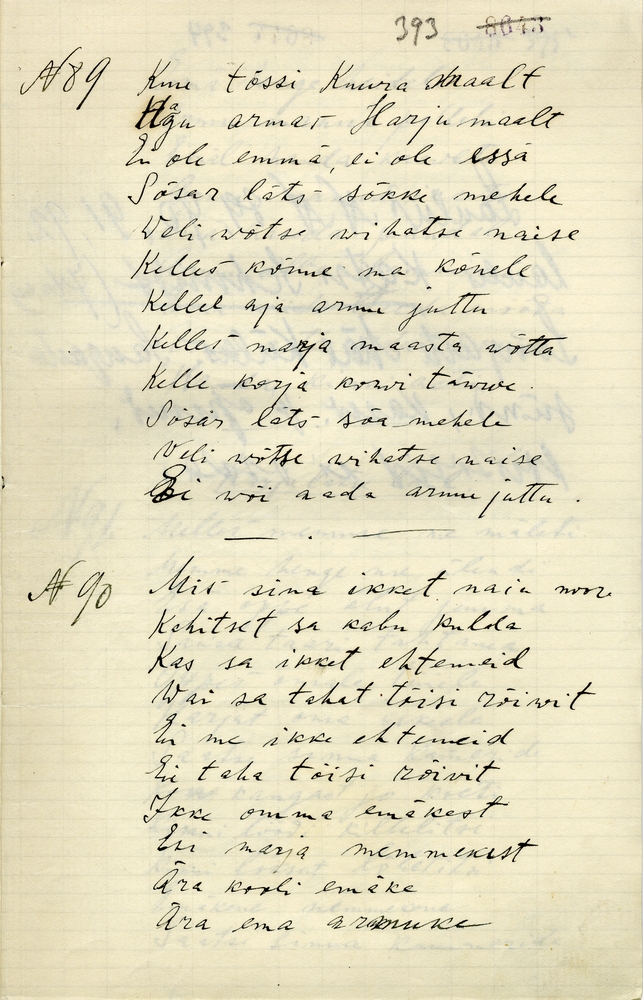 393 8043
N 89 Kuu tõssi Kuura maalt
Hagu armas Harju maalt
Ei ole emmä, ei ole essä
Sõsar läts sõkke mehele
Weli wõtse wihatse naise
Kelles kõnne ma kõnele
Kellel aja armu juttu
Kelles marja maasta wõtta
Kelle korja korwi täwwe.
Sõsar läts sõa mehele
Veli wõtse wihatse naise
Ei wõi aada armu juttu.
N 90 Mis sina ikket naiu noor
Kahitset sa kabu kulda
Kas sa ikket ehtemeid
Wai sa tahat tõisi rõiwit
Ei me ikke ehtemeid
Ei taha tõisi rõivit
Ikke omma emäkest
Esi marja memmekest
Ära kooli emäke
Ära ema armuke